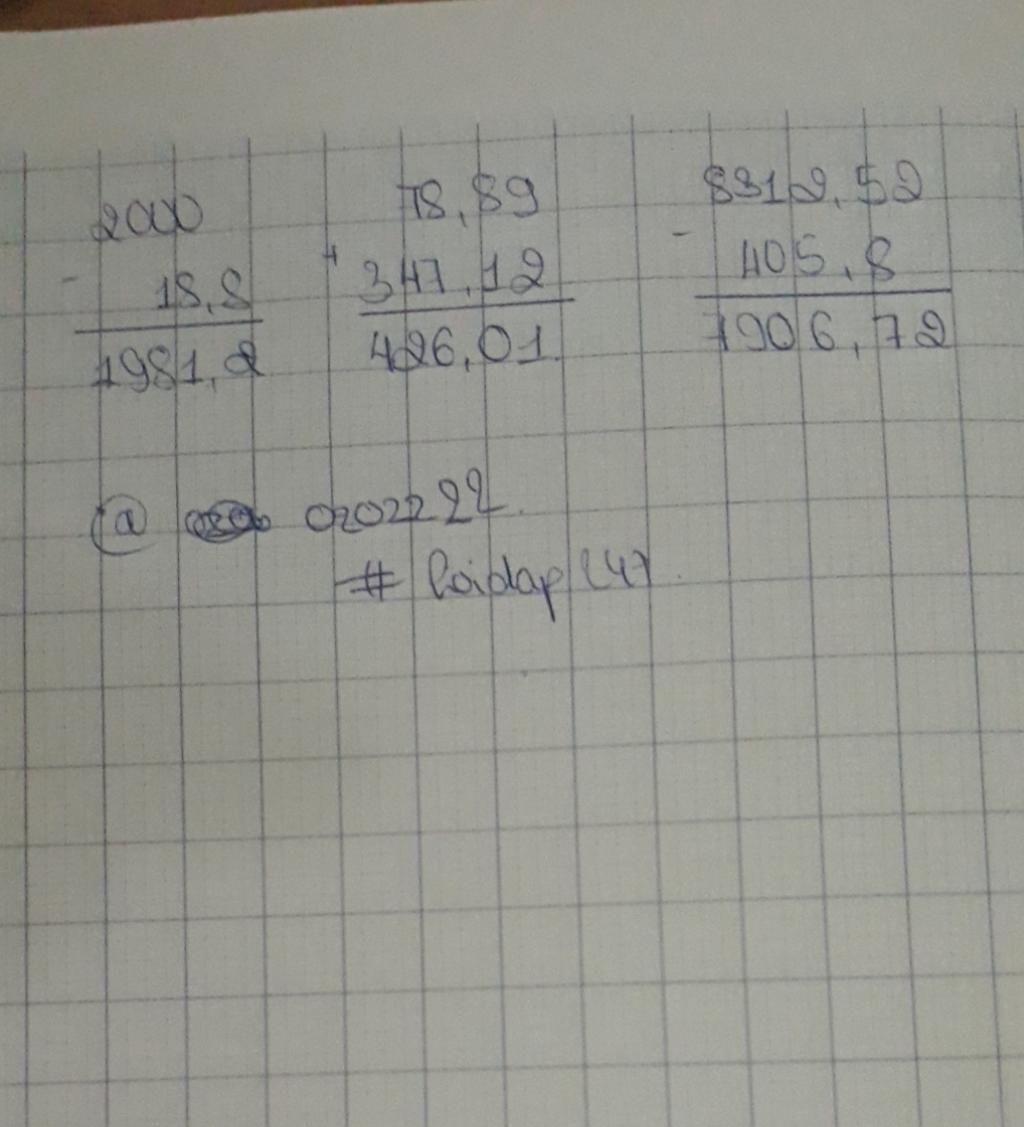 2000
- 18,8
1981,2
78,89
+ 347,12
426,01
8312,52
- 405,8
7906,72
@ 0202222
# loidap (4)